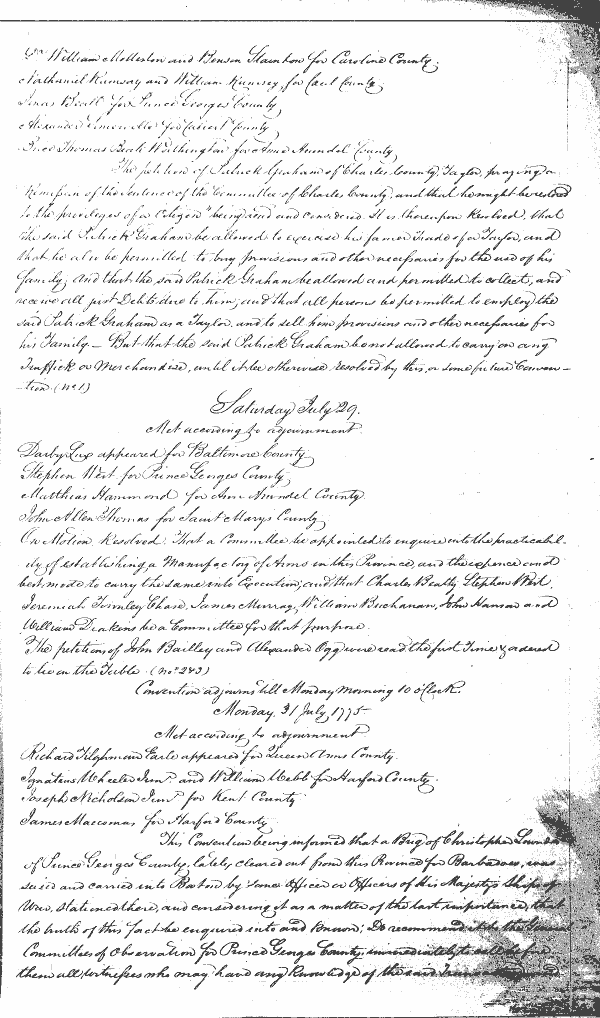 William Molleston and Benson Stainton for Caroline County.
Nathaniel Ramsay and William Rumsey, for Cecil County
Beall for Prince Georges County
Alexander Somervelle for Calvert County
Brice Thomas Beale Worthington for Anne Arundel County
The petition of Patrick Graham of Charles County, Taylor, praying a
Remission of the sentence of the Committee of Charles County, and that he might be restored
to the privileges of a Citizen being read and considered It is thereupon Resolved, that
the said Patrick Graham be allowed to exercise his former Trade of a Taylor, and
that he also be permitted to buy provisions and other necessaries for the use of his
family, And that the said Patrick Graham be allowed and permitted to collect, and
receive all just Debts due to him, and that all persons be permitted to employ the
said Patrick Graham as a Taylor and to sell him provisions and other necessaries for
his Family — But that the said Patrick Graham be not allowed to carry on any
Traffick or Merchandise, until it be otherwise resolved by this, or some future Conven-
-tion. (No 1)
Saturday July 29.
Met according to adjournment
Darby Lux appeared for Baltimore County
Stephen West for Prince Georges County
Matthias Hammond for Ann Arundel County
John Allen Thomas for Saint Marys County
On Motion, Resolved That a Committee be appointed to enquire into the practicabil-
ity of establishing a Manufactory of Arms in this Province, and the expence and
best mode to carry the same into Execution, and that Charles Beatty Stephen West
Jeremiah Townley Chase, James Murray, William Buchanan, John Hanson and
William Deakens be a Committee for that purpose.
The petitions of John Bailley and Alexander Ogg were read the first Time & ordered
to lie on the Table (No 2&3)
Convention adjourns till Monday morning 10 oClock.
Monday, 31 July, 1775
Met according to adjournment
Richard Tilghman Earle appeared for Queen Anns County.
Ignatius Wheeler Junr. and William Webb for Harford County
Joseph Nicholson Junr. for Kent County
James Maccomas for Harford County
This Convention being informed that a Brig of Christopher Lowndes
of Prince Georges County, lately cleared out from this Province for Barbadoes, was
seised and carried into Boston by some Officer or Officers of His Majestys Ships of
War, stationed there, and considering it as a matter of the last importance, that
the truth of this fact be enquired into and known; Do recommend it to the
Committee of Observation for Prince Georges County, immediately to call before
them all witnesses who may have any knowledge of the said